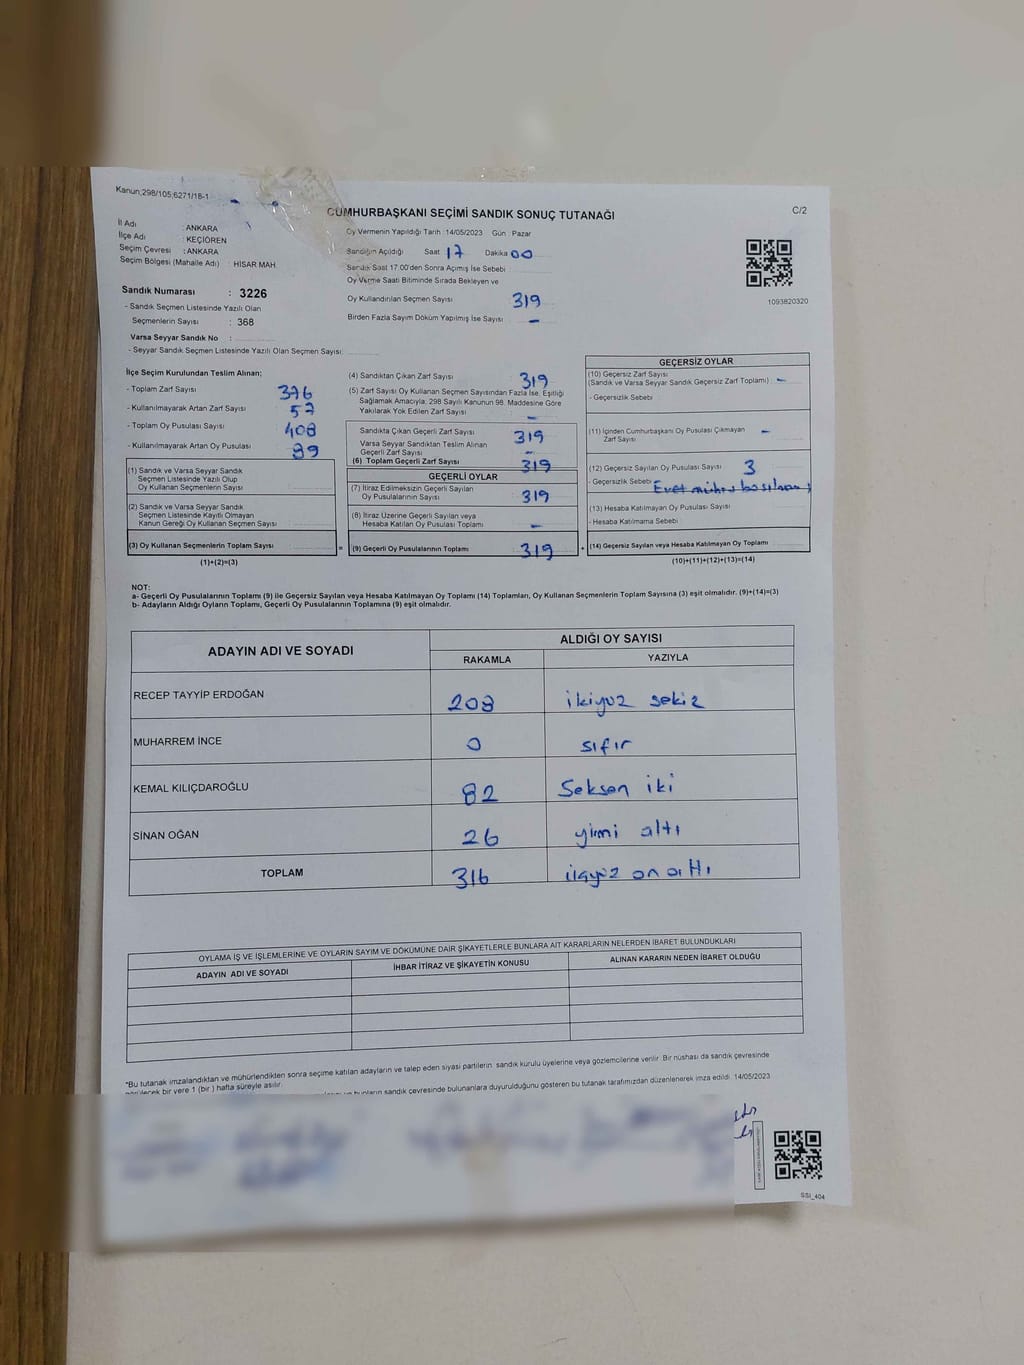 Kanun;298/105;6271/18-1
CUMHURBAŞKANI SEÇİMİ SANDIK SONUÇ TUTANAĞI
C/2
İl Adı : ANKARA
İlçe Adı : KEÇİÖREN
Seçim Çevresi : ANKARA
Seçim Bölgesi (Mahalle Adı) : HİSAR MAH.
Oy Vermenin Yapıldığı Tarih :14/05/2023 Gün : Pazar
Sandığın Açıldığı Saat 17 Dakika 00
Sandık Saat 17.00'den Sonra Açılmış İse Sebebi
Oy Verme Saati Bitiminde Sırada Bekleyen ve
Oy Kullandırılan Seçmen Sayısı 319
Birden Fazla Sayım Döküm Yapılmış İse Sayısı –
1093820320
Sandık Numarası : 3226
- Sandık Seçmen Listesinde Yazılı Olan
Seçmenlerin Sayısı : 368
Varsa Seyyar Sandık No :
- Seyyar Sandık Seçmen Listesinde Yazılı Olan Seçmen Sayısı:
İlçe Seçim Kurulundan Teslim Alınan;
- Toplam Zarf Sayısı 376
- Kullanılmayarak Artan Zarf Sayısı 57
- Toplam Oy Pusulası Sayısı 408
- Kullanılmayarak Artan Oy Pusulası 89
(1) Sandık ve Varsa Seyyar Sandık
Seçmen Listesinde Yazılı Olup
Oy Kullanan Seçmenlerin Sayısı
(2) Sandık ve Varsa Seyyar Sandık
Seçmen Listesinde Kayıtlı Olmayan
Kanun Gereği Oy Kullanan Seçmen Sayısı
(3) Oy Kullanan Seçmenlerin Toplam Sayısı
(1)+(2)=(3)
(4) Sandıktan Çıkan Zarf Sayısı : 319
(5) Zarf Sayısı Oy Kullanan Seçmen Sayısından Fazla İse, Eşitliği
Sağlamak Amacıyla, 298 Sayılı Kanunun 98. Maddesine Göre
Yakılarak Yok Edilen Zarf Sayısı : –
Sandıkta Çıkan Geçerli Zarf Sayısı 319
Varsa Seyyar Sandıktan Teslim Alınan
Geçerli Zarf Sayısı –
(6) Toplam Geçerli Zarf Sayısı 319
GEÇERLİ OYLAR
(7) İtiraz Edilmeksizin Geçerli Sayılan
Oy Pusulalarının Sayısı 319
(8) İtiraz Üzerine Geçerli Sayılan veya
Hesaba Katılan Oy Pusulası Toplamı –
= (9) Geçerli Oy Pusulalarının Toplamı 319 +
GEÇERSİZ OYLAR
(10) Geçersiz Zarf Sayısı
(Sandık ve Varsa Seyyar Sandık Geçersiz Zarf Toplamı) : –
- Geçersizlik Sebebi
(11) İçinden Cumhurbaşkanı Oy Pusulası Çıkmayan
Zarf Sayısı –
(12) Geçersiz Sayılan Oy Pusulası Sayısı 3
- Geçersizlik Sebebi Evet mührü
(13) Hesaba Katılmayan Oy Pusulası Sayısı
- Hesaba Katılmama Sebebi
(14) Geçersiz Sayılan veya Hesaba Katılmayan Oy Toplamı
(10)+(11)+(12)+(13)=(14)
NOT:
a- Geçerli Oy Pusulalarının Toplamı (9) ile Geçersiz Sayılan veya Hesaba Katılmayan Oy Toplamı (14) Toplamları, Oy Kullanan Seçmenlerin Toplam Sayısına (3) eşit olmalıdır. (9)+(14)=(3)
b- Adayların Aldığı Oyların Toplamı, Geçerli Oy Pusulalarının Toplamına (9) eşit olmalıdır.
ADAYIN ADI VE SOYADI
ALDIĞI OY SAYISI
RAKAMLA YAZIYLA
RECEP TAYYİP ERDOĞAN 208 ikiyüz sekiz
MUHARREM İNCE 0 sıfır
KEMAL KILIÇDAROĞLU 82 Seksen iki
SİNAN OĞAN 26 yirmi altı
TOPLAM 316 üçyüz on altı
OYLAMA İŞ VE İŞLEMLERİNE VE OYLARIN SAYIM VE DÖKÜMÜNE DAİR ŞİKAYETLERLE BUNLARA AİT KARARLARIN NELERDEN İBARET BULUNDUKLARI
ADAYIN ADI VE SOYADI İHBAR İTİRAZ VE ŞİKAYETİN KONUSU ALINAN KARARIN NEDEN İBARET OLDUĞU
*Bu tutanak imzalandıktan ve mühürlendikten sonra seçime katılan adayların ve talep eden siyasi partilerin, sandık kurulu üyelerine veya gözlemcilerine verilir. Bir nüshası da sandık çevresinde
görülecek bir yere 1 (bir) hafta süreyle asılır.
bunların sandık çevresinde bulunanlara duyurulduğunu gösteren bu tutanak tarafımızdan düzenlenerek imza edildi. 14/05/2023
SSİ_404